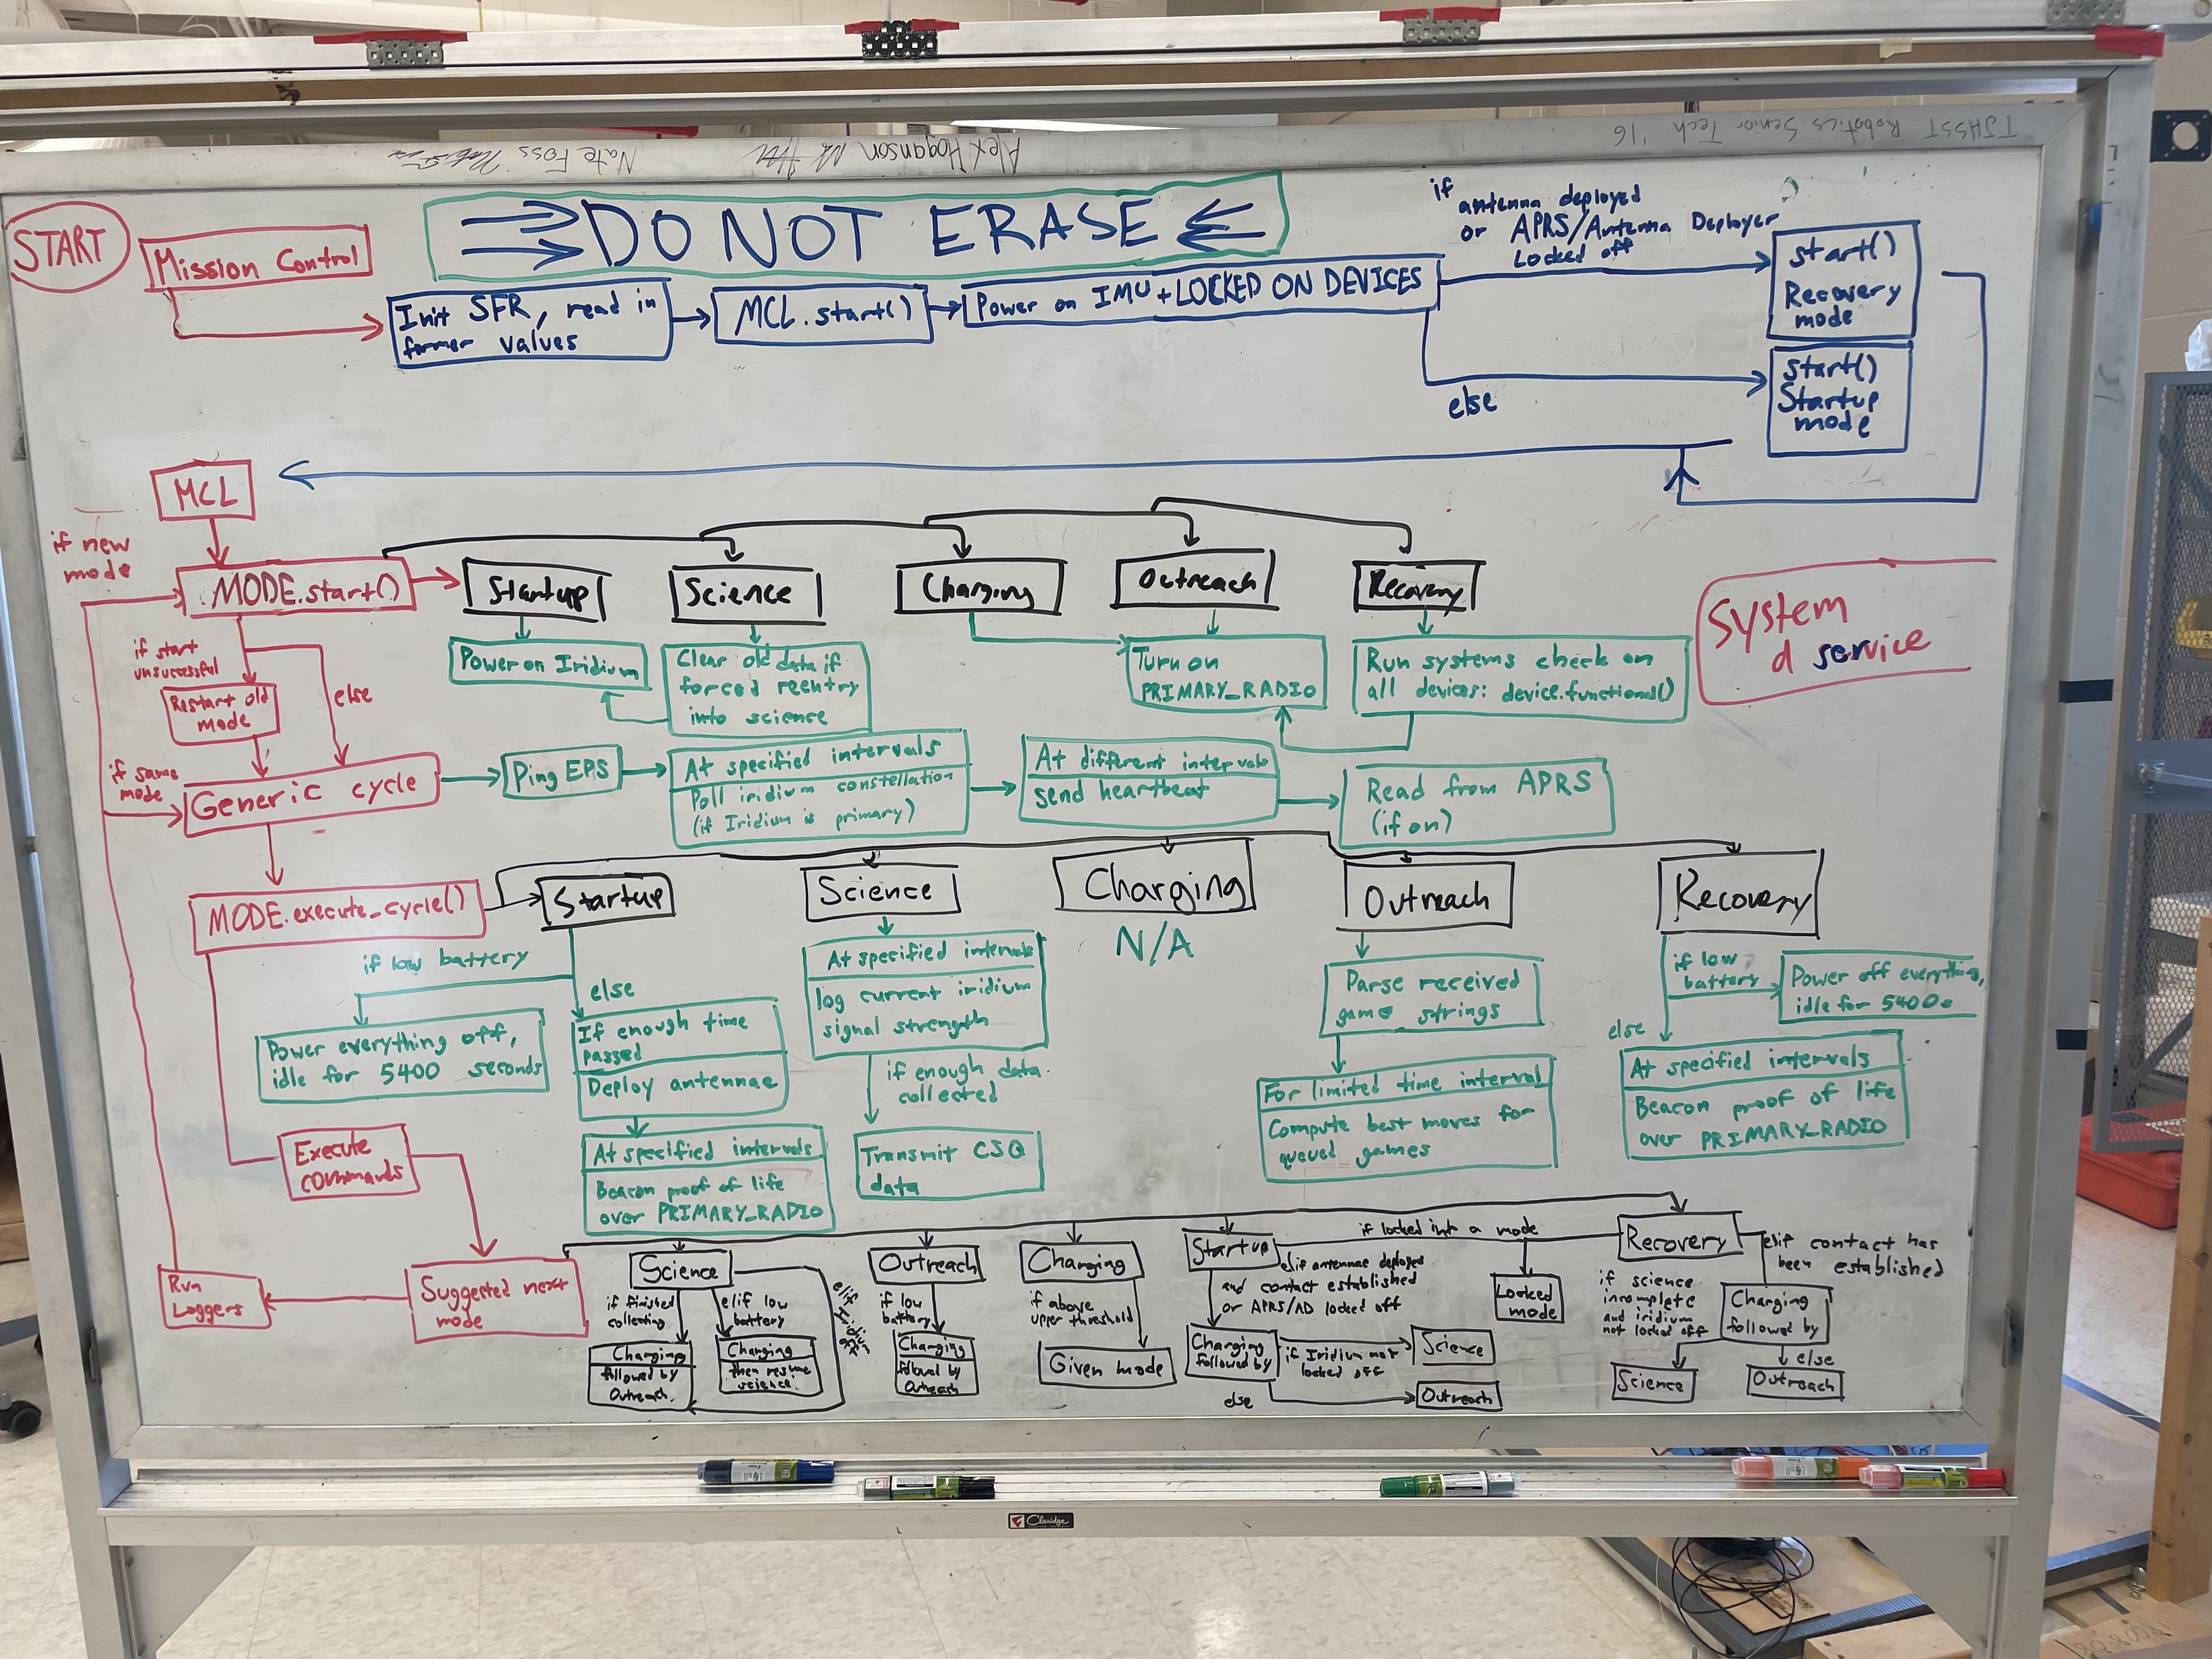 TJHSST Robotics Senior Tech '16
Alex Hoganson
Nate Foss
START
Mission Control
DO NOT ERASE
Init SFR, read in
former values
MCL.start()
Power on IMU + LOCKED ON DEVICES
if
antenna deployed
or APRS/Antenna Deployer
Locked off
start()
Recovery
mode
else
start()
Startup
mode
MCL
if new
mode
MODE.start()
Startup
Science
Charging
Outreach
Recovery
System
d service
if start
unsuccessful
Restart old
mode
else
Power on Iridium
Clear old data if
forced reentry
into science
Turn on
PRIMARY_RADIO
Run systems check on
all devices: device.functional()
if same
mode
Generic cycle
Ping EPS
At specified intervals
Poll iridium constellation
(if Iridium is primary)
At different intervals
send heartbeat
Read from APRS
(if on)
MODE.execute_cycle()
Startup
Science
Charging
N/A
Outreach
Recovery
if low battery
else
Power everything off,
idle for 5400 seconds
If enough time
passed
Deploy antennae
At specified intervals
Beacon proof of life
over PRIMARY_RADIO
At specified intervals
log current iridium
signal strength
if enough data
collected
Transmit CSQ
data
Parse received
game strings
For limited time interval
Compute best moves for
queued games
if low
battery
Power off everything,
idle for 5400s
else
At specified intervals
Beacon proof of life
over PRIMARY_RADIO
Execute
commands
Suggested next
mode
Run
Loggers
Science
if finished
collecting
Charging
followed by
Outreach
elif low
battery
Charging
then resume
science
elif Iridium
Outreach
if low
battery
Charging
followed by
Outreach
Charging
if above
upper threshold
Given mode
Startup
elif antennae deployed
and contact established
or APRS/AD locked off
Charging
followed by
if Iridium not
locked off
Science
else
Outreach
if locked into a mode
Locked
mode
Recovery
elif contact has
been established
Charging
followed by
if science
incomplete
and iridium
not locked off
Science
else
Outreach
Claridge